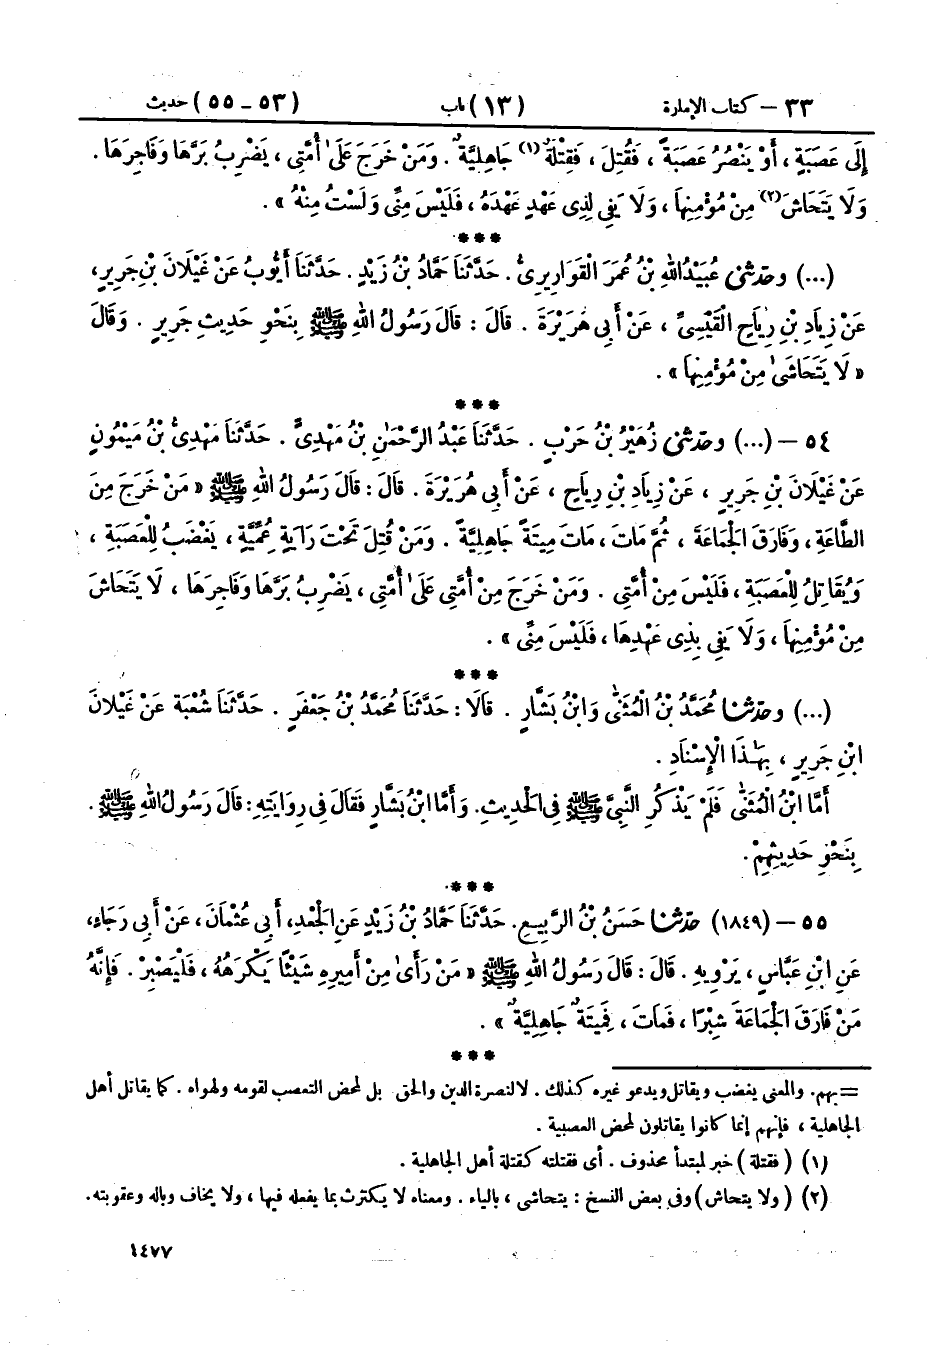 ٣٣ – كتاب الإمارة (١٣) باب (٥٣ – ٥٥) حديث
إِلَى عَصَبَةٍ ، أَوْ يَنْصُرُ عَصَبَةً ، فَقُتِلَ ، فَقِتْلَةٌ(١) جَاهِلِيَّةٌ . وَمَنْ خَرَجَ عَلَىٰ أُمَّتِي ، يَضْرِبُ بَرَّهَا وَفَاجِرَهَا .
وَلَا يَتَحَاشَ(٢) مِنْ مُؤْمِنِهَا ، وَلَا يَفِي لِذِي عَهْدٍ عَهْدَهُ ، فَلَيْسَ مِنِّي وَلَسْتُ مِنْهُ » .
***
(...) وحدّثني عُبَيْدُاللهِ بْنُ عُمَرَ الْقَوَارِيرِيُّ . حَدَّثَنَا حَمَّادُ بْنُ زَيْدٍ . حَدَّثَنَا أَيُّوبُ عَنْ غَيْلَانَ بْنِ جَرِيرٍ ،
عَنْ زِيَادِ بْنِ رِيَاحٍ الْقَيْسِيِّ ، عَنْ أَبِي هُرَيْرَةَ . قَالَ : قَالَ رَسُولُ اللهِ ﷺ بِنَحْوِ حَدِيثِ جَرِيرٍ . وَقَالَ
« لَا يَتَحَاشَىٰ مِنْ مُؤْمِنِهَا » .
***
٥٤ – (...) وحدّثني زُهَيْرُ بْنُ حَرْبٍ . حَدَّثَنَا عَبْدُ الرَّحْمَٰنِ بْنُ مَهْدِيٍّ . حَدَّثَنَا مَهْدِيُّ بْنُ مَيْمُونٍ
عَنْ غَيْلَانَ بْنِ جَرِيرٍ ، عَنْ زِيَادِ بْنِ رِيَاحٍ ، عَنْ أَبِي هُرَيْرَةَ . قَالَ : قَالَ رَسُولُ اللهِ ﷺ « مَنْ خَرَجَ مِنَ
الطَّاعَةِ ، وَفَارَقَ الْجَمَاعَةَ ، ثُمَّ مَاتَ ، مَاتَ مِيتَةً جَاهِلِيَّةً . وَمَنْ قُتِلَ تَحْتَ رَايَةٍ عِمِّيَّةٍ ، يَغْضَبُ لِلْعَصَبَةِ ،
وَيُقَاتِلُ لِلْعَصَبَةِ ، فَلَيْسَ مِنْ أُمَّتِي . وَمَنْ خَرَجَ مِنْ أُمَّتِي عَلَىٰ أُمَّتِي ، يَضْرِبُ بَرَّهَا وَفَاجِرَهَا ، لَا يَتَحَاشَ
مِنْ مُؤْمِنِهَا ، وَلَا يَفِي بِذِي عَهْدِهَا ، فَلَيْسَ مِنِّي » .
***
(...) وحدّثنا مُحَمَّدُ بْنُ الْمُثَنَّىٰ وَابْنُ بَشَّارٍ . قَالَا : حَدَّثَنَا مُحَمَّدُ بْنُ جَعْفَرٍ . حَدَّثَنَا شُعْبَةُ عَنْ غَيْلَانَ
ابْنِ جَرِيرٍ ، بِهَٰذَا الْإِسْنَادِ .
أَمَّا ابْنُ الْمُثَنَّىٰ فَلَمْ يَذْكُرِ النَّبِيَّ ﷺ فِي الْحَدِيثِ. وَأَمَّا ابْنُ بَشَّارٍ فَقَالَ فِي رِوَايَتِهِ : قَالَ رَسُولُ اللهِ ﷺ .
بِنَحْوِ حَدِيثِهِمْ .
***
٥٥ – (١٨٤٩) حدّثنا حَسَنُ بْنُ الرَّبِيعِ . حَدَّثَنَا حَمَّادُ بْنُ زَيْدٍ عَنِ الْجَعْدِ، أَبِي عُثْمَانَ، عَنْ أَبِي رَجَاءٍ،
عَنِ ابْنِ عَبَّاسٍ ، يَرْوِيهِ . قَالَ : قَالَ رَسُولُ اللهِ ﷺ « مَنْ رَأَىٰ مِنْ أَمِيرِهِ شَيْئًا يَكْرَهُهُ ، فَلْيَصْبِرْ . فَإِنَّهُ
مَنْ فَارَقَ الْجَمَاعَةَ شِبْرًا ، فَمَاتَ ، فَمِيتَةٌ جَاهِلِيَّةٌ » .
***
= بهم. والمعنى يغضب ويقاتل ويدعو غيره كذلك . لا لنصرة الدين والحق بل لمحض التعصب لقومه ولهواه . كما يقاتل أهل
الجاهلية ، فإنهم إنما كانوا يقاتلون لمحض العصبية .
(١) ( فقتلة ) خبر لمبتدأ محذوف . أي فقتلته كقتلة أهل الجاهلية .
(٢) ( ولا يتحاش ) وفي بعض النسخ : يتحاشى ، بالياء . ومعناه لا يكترث بما يفعله فيها ، ولا يخاف وباله وعقوبته.
١٤٧٧